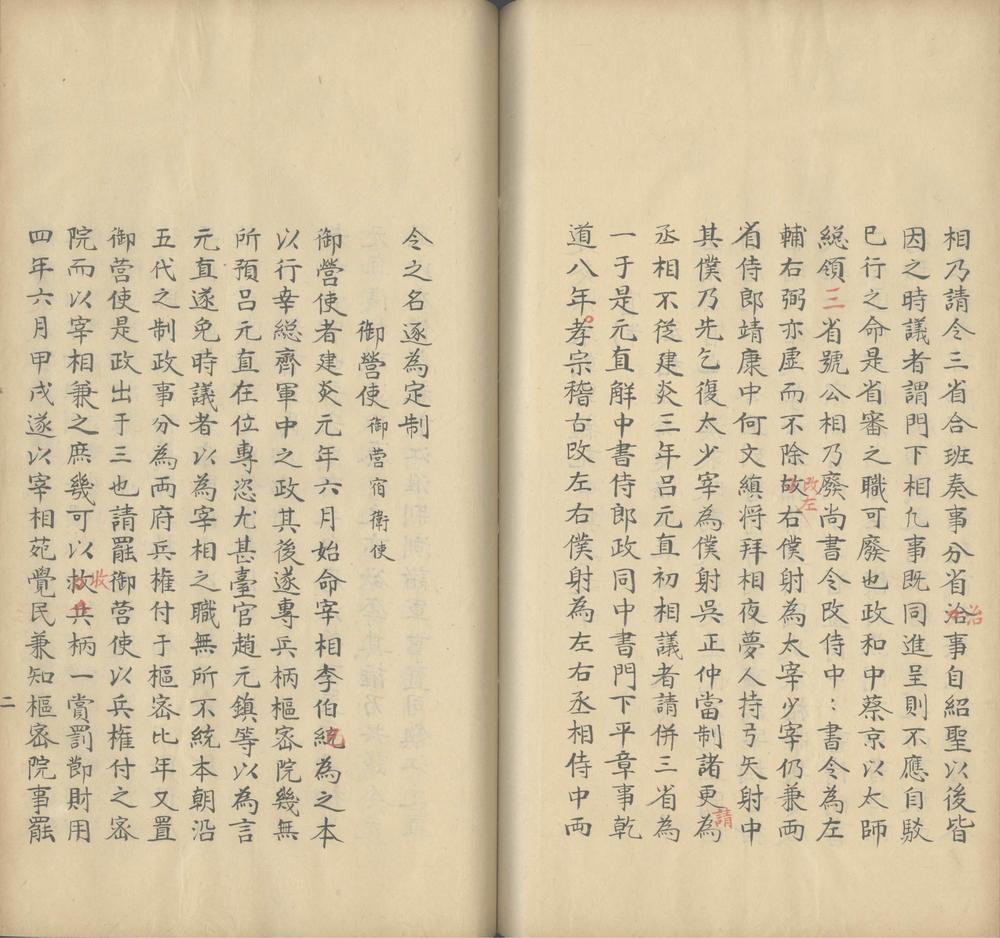 相乃請令三省合班奏事分省治事自紹聖以後皆
因之時議者謂門下相凢事既同進呈則不應自駁
已行之命是省審之職可廢也政和中蔡京以太師
総領三省號公相乃廢尚書令改侍中：書令為左
輔右弼亦虚而不除改左右僕射為太宰少宰仍兼兩
省侍郎靖康中何文縝将拜相夜夢人持弓矢射中
其僕乃先乞復太少宰為僕射吳正仲當制諸更為
請
丞相不從建炎三年吕元直初相議者請併三省為
一于是元直解中書侍郎政同中書門下平章事乾
道八年孝宗稽古改左右僕射為左右丞相侍中兩
令之名逐為定制
御營使御营宿衛使
御營使者建炎元年六月始命宰相李伯紀為之本
以行幸総齊軍中之政其後遂專兵柄樞密院幾無
所預吕元直在位專恣尤甚臺官趙元鎮等以為言
元直遂免時議者以為宰相之職無所不統本朝沿
五代之制政事分為兩府兵權付于樞密比年又置
御营使是政出于三也請罷御营使以兵權付之密
院而以宰相兼之庶幾可以救兵柄一賞罰節財用
收
四年六月甲戌遂以宰相苑覺民兼知樞密院事罷
二